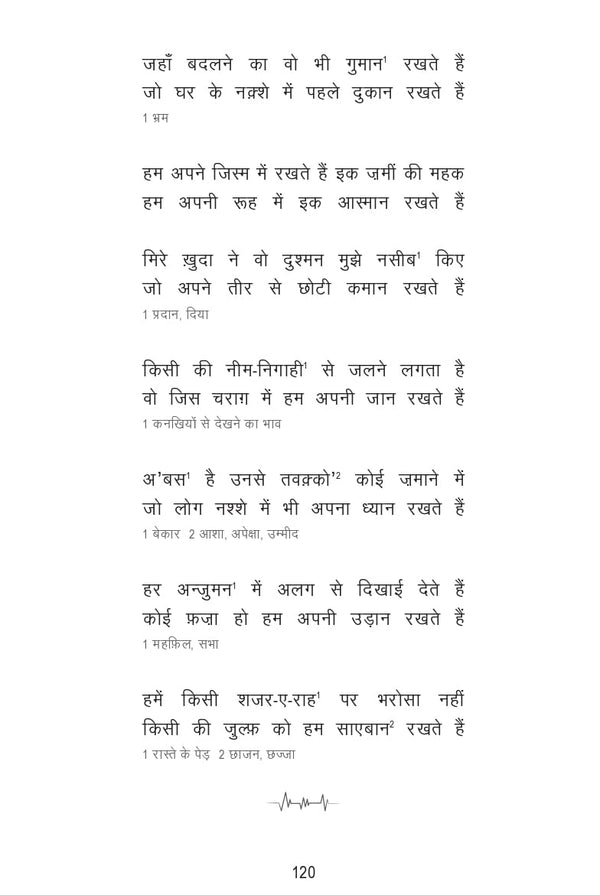 जहाँ बदलने का वो भी गुमान¹ रखते हैं
जो घर के नक़्शे में पहले दुकान रखते हैं
1 भ्रम
हम अपने जिस्म में रखते हैं इक ज़मीं की महक
हम अपनी रूह में इक आस्मान रखते हैं
मिरे ख़ुदा ने वो दुश्मन मुझे नसीब¹ किए
जो अपने तीर से छोटी कमान रखते हैं
1 प्रदान, दिया
किसी की नीम-निगाही¹ से जलने लगता है
वो जिस चराग़ में हम अपनी जान रखते हैं
1 कनखियों से देखने का भाव
अ’बस¹ है उनसे तवक़्क़ो’² कोई ज़माने में
जो लोग नश्शे में भी अपना ध्यान रखते हैं
1 बेकार 2 आशा, अपेक्षा, उम्मीद
हर अन्जुमन¹ में अलग से दिखाई देते हैं
कोई फ़ज़ा हो हम अपनी उड़ान रखते हैं
1 महफ़िल, सभा
हमें किसी शजर-ए-राह¹ पर भरोसा नहीं
किसी की ज़ुल्फ़ को हम साएबान² रखते हैं
1 रास्ते के पेड़ 2 छाजन, छज्जा
120